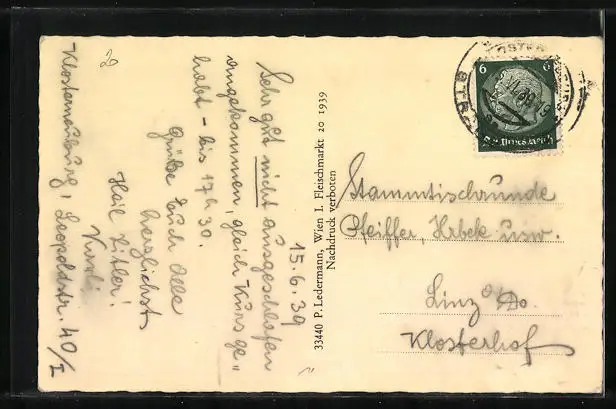 15.6.39
Sehr gut nicht ausgeschlafen
angekommen, gleich Kurs ge"
habt - bis 17h30.
Grüße Euch Alle
herzlichst
Heil Hitler!
Klosterneuburg, Leopoldstr. 40/I
33440 P. Ledermann, Wien I. Fleischmarkt 20 1939
Nachdruck verboten
6 6
Deutsches Reich
Stammtischrunde
Pfeiffer, Hrbek usw.
Linz a/Do.
Klosterhof